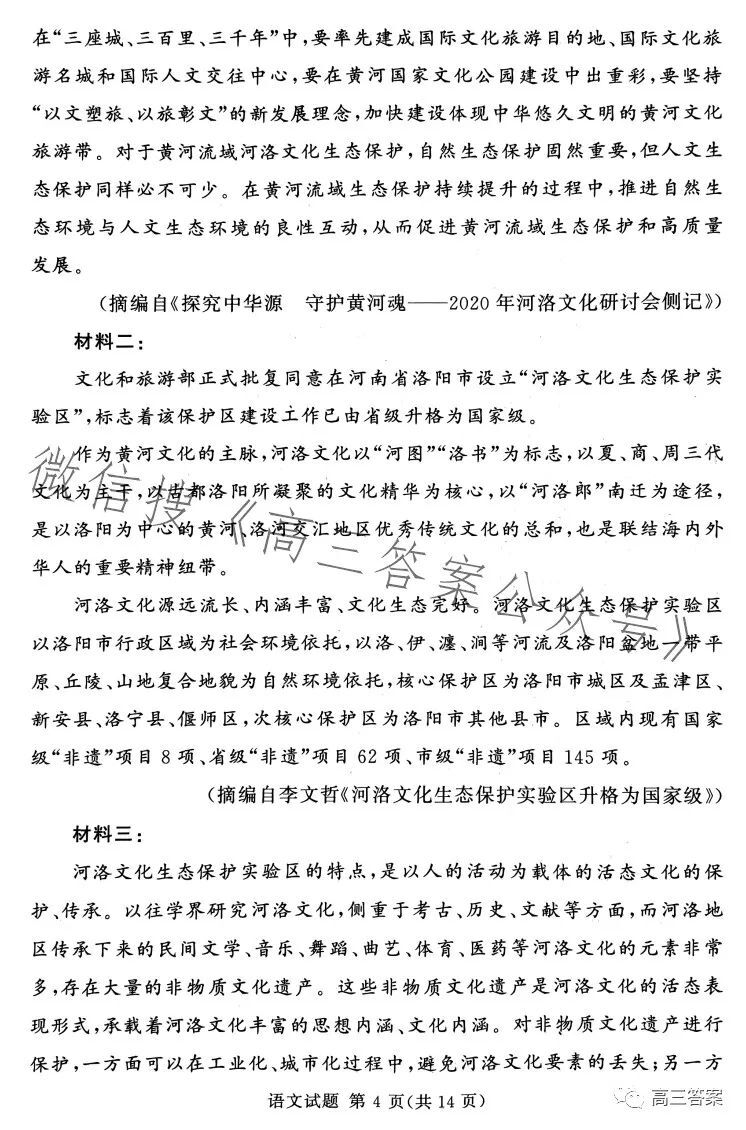 在“三座城、三百里、三千年”中，要率先建成国际文化旅游目的地、国际文化旅
游名城和国际人文交往中心，要在黄河国家文化公园建设中出重彩，要坚持
“以文塑旅、以旅彰文”的新发展理念，加快建设体现中华悠久文明的黄河文化
旅游带。对于黄河流域河洛文化生态保护，自然生态保护固然重要，但人文生
态保护同样必不可少。在黄河流域生态保护持续提升的过程中，推进自然生
态环境与人文生态环境的良性互动，从而促进黄河流域生态保护和高质量
发展。
（摘编自《探究中华源　守护黄河魂——2020 年河洛文化研讨会侧记》）
材料二：
文化和旅游部正式批复同意在河南省洛阳市设立“河洛文化生态保护实
验区”，标志着该保护区建设工作已由省级升格为国家级。
作为黄河文化的主脉，河洛文化以“河图”“洛书”为标志，以夏、商、周三代
文化为主干，以古都洛阳所凝聚的文化精华为核心，以“河洛郎”南迁为途径，
是以洛阳为中心的黄河、洛河交汇地区优秀传统文化的总和，也是联结海内外
华人的重要精神纽带。
河洛文化源远流长、内涵丰富、文化生态完好。河洛文化生态保护实验区
以洛阳市行政区域为社会环境依托，以洛、伊、瀍、涧等河流及洛阳盆地一带平
原、丘陵、山地复合地貌为自然环境依托，核心保护区为洛阳市城区及孟津区、
新安县、洛宁县、偃师区，次核心保护区为洛阳市其他县市。区域内现有国家
级“非遗”项目 8 项、省级“非遗”项目 62 项、市级“非遗”项目 145 项。
（摘编自李文哲《河洛文化生态保护实验区升格为国家级》）
材料三：
河洛文化生态保护实验区的特点，是以人的活动为载体的活态文化的保
护、传承。以往学界研究河洛文化，侧重于考古、历史、文献等方面，而河洛地
区传承下来的民间文学、音乐、舞蹈、曲艺、体育、医药等河洛文化的元素非常
多，存在大量的非物质文化遗产。这些非物质文化遗产是河洛文化的活态表
现形式，承载着河洛文化丰富的思想内涵、文化内涵。对非物质文化遗产进行
保护，一方面可以在工业化、城市化过程中，避免河洛文化要素的丢失；另一方
语文试题 第 4 页（共 14 页）
微信搜《高三答案公众号》
高三答案